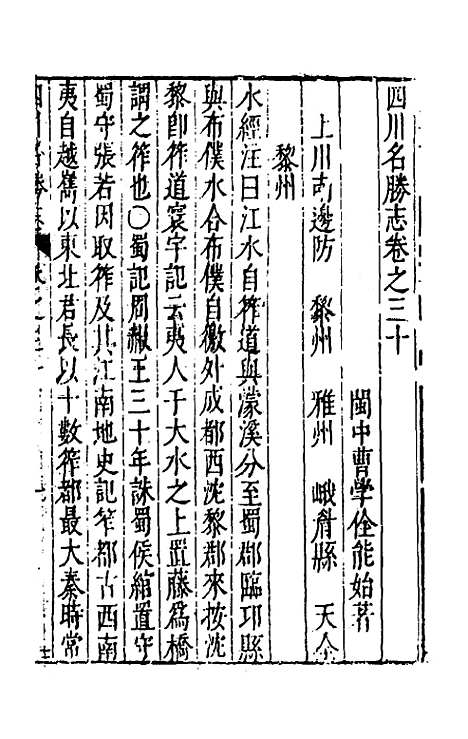 四川名勝志卷之三十
閩中曹學佺能始著
上川南邊防　黎州　雅州　峨眉縣　天全
黎州
水經注曰江水自筰道與濛溪分至蜀郡臨邛縣
與布僕水合布僕自徼外成都西沈黎郡來按沈
黎卽筰道寰宇記云夷人于大水之上置藤爲橋
謂之筰也〇蜀記周赧王三十年誅蜀侯綰置守
蜀守張若因取筰及其江南地史記筰都古西南
夷自越嶲以東北君長以十數筰都最大秦時常